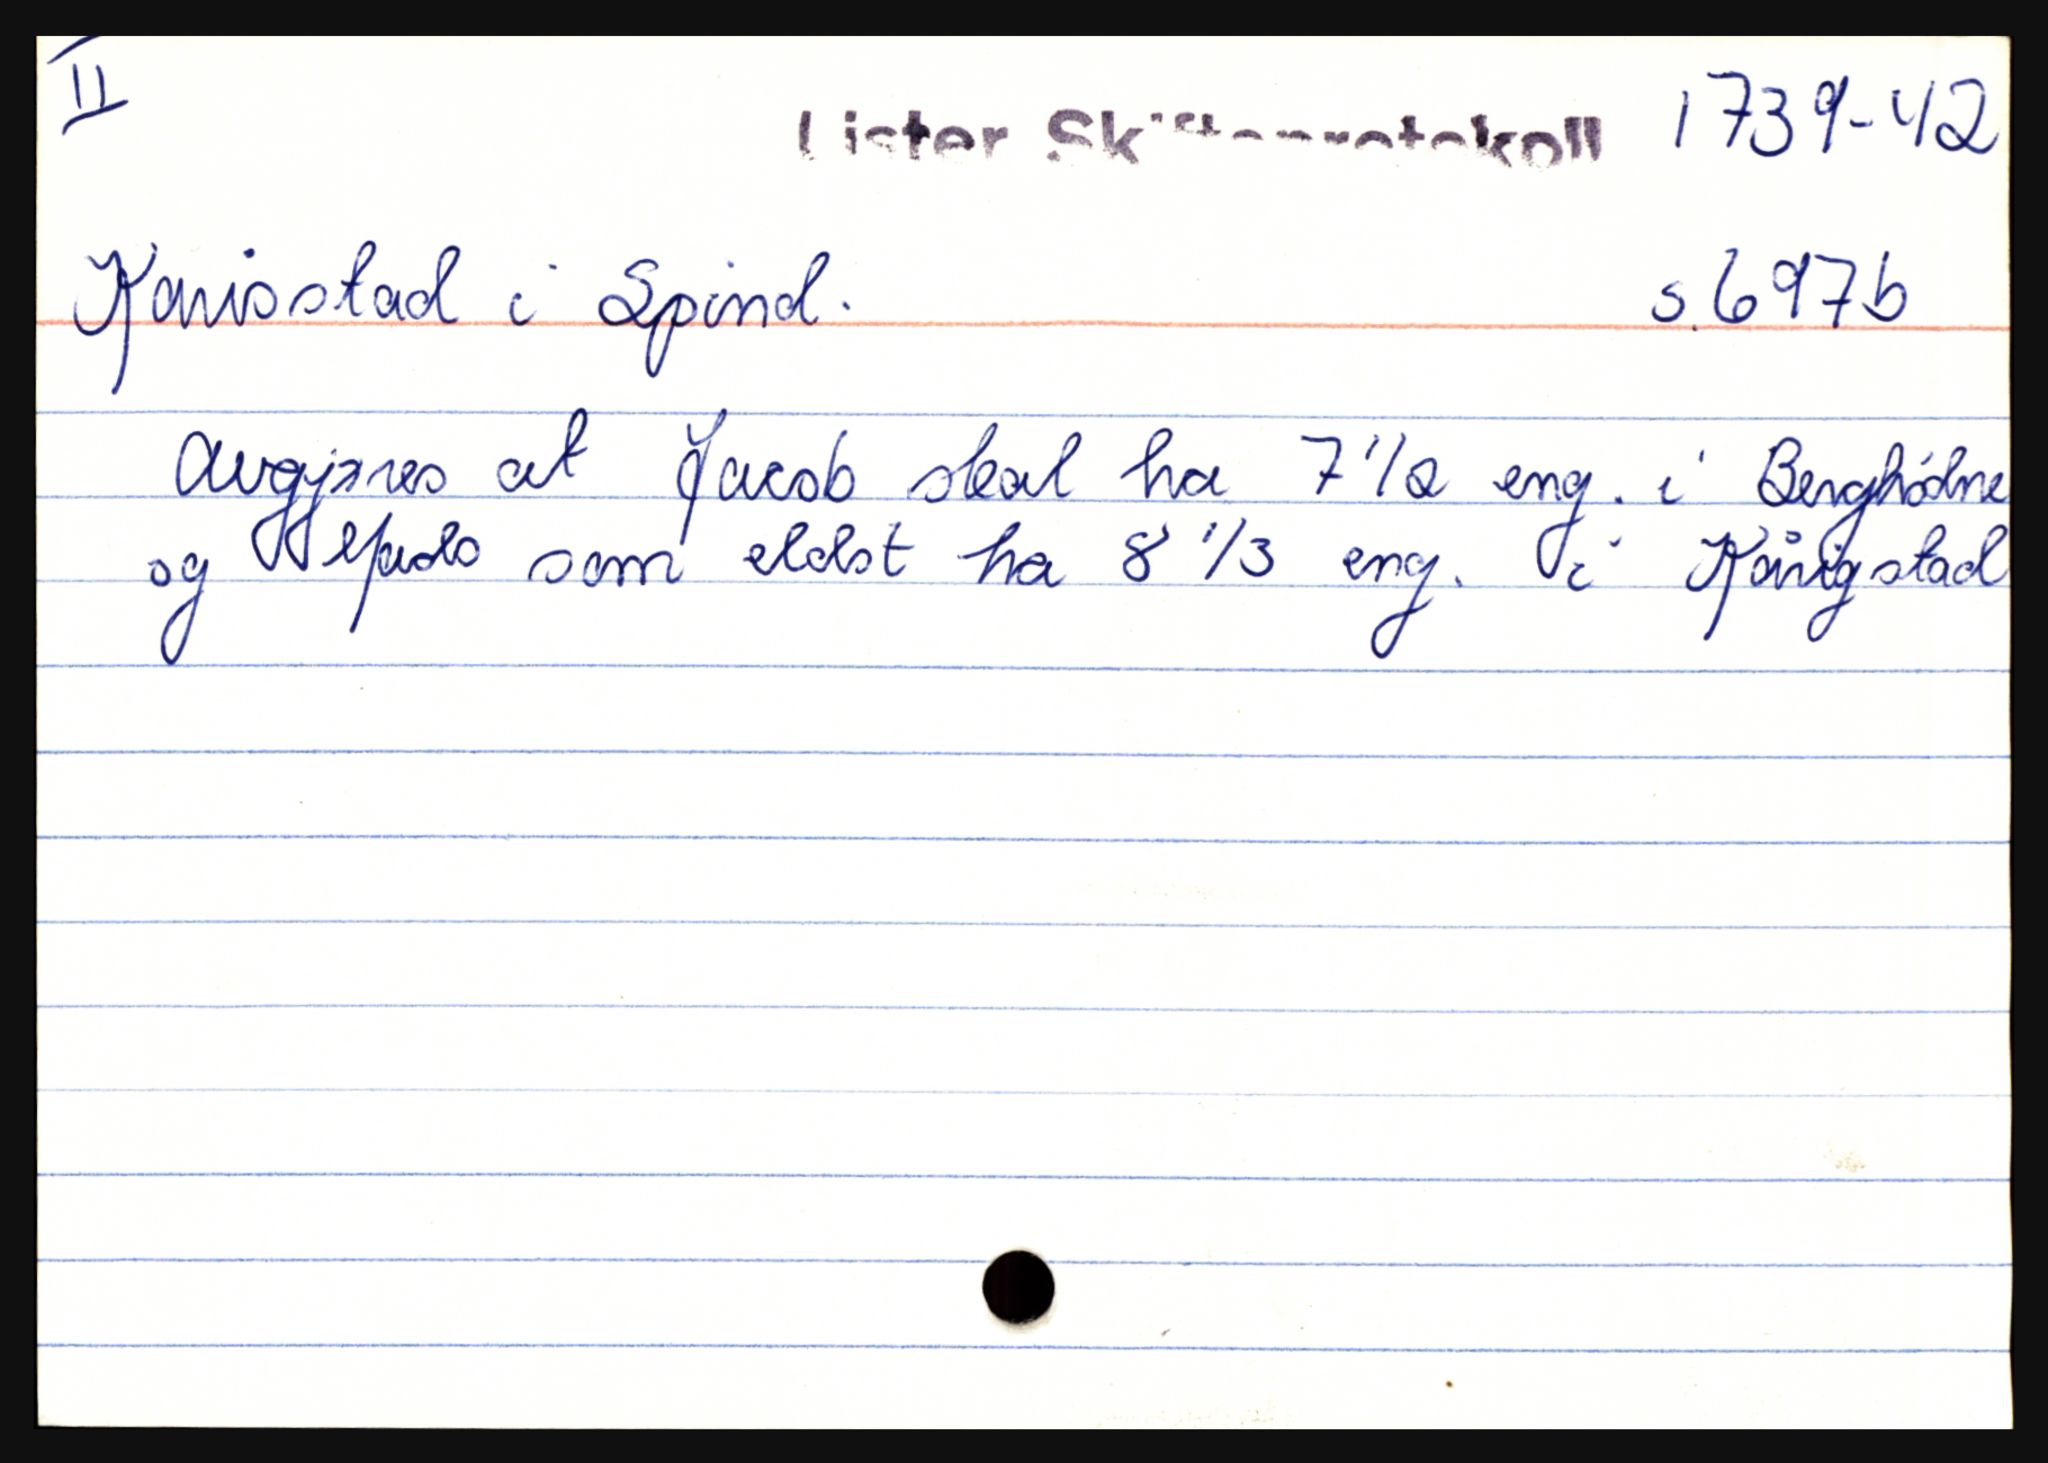 II
Lister Skifteprotokoll 1739-42
Karisstad i Spind. s.697b
Avgjøres at Jacob skal ha 7 1/2 eng. i Berghódne
og som eldst ha 8 1/3 eng. i Kårigstad